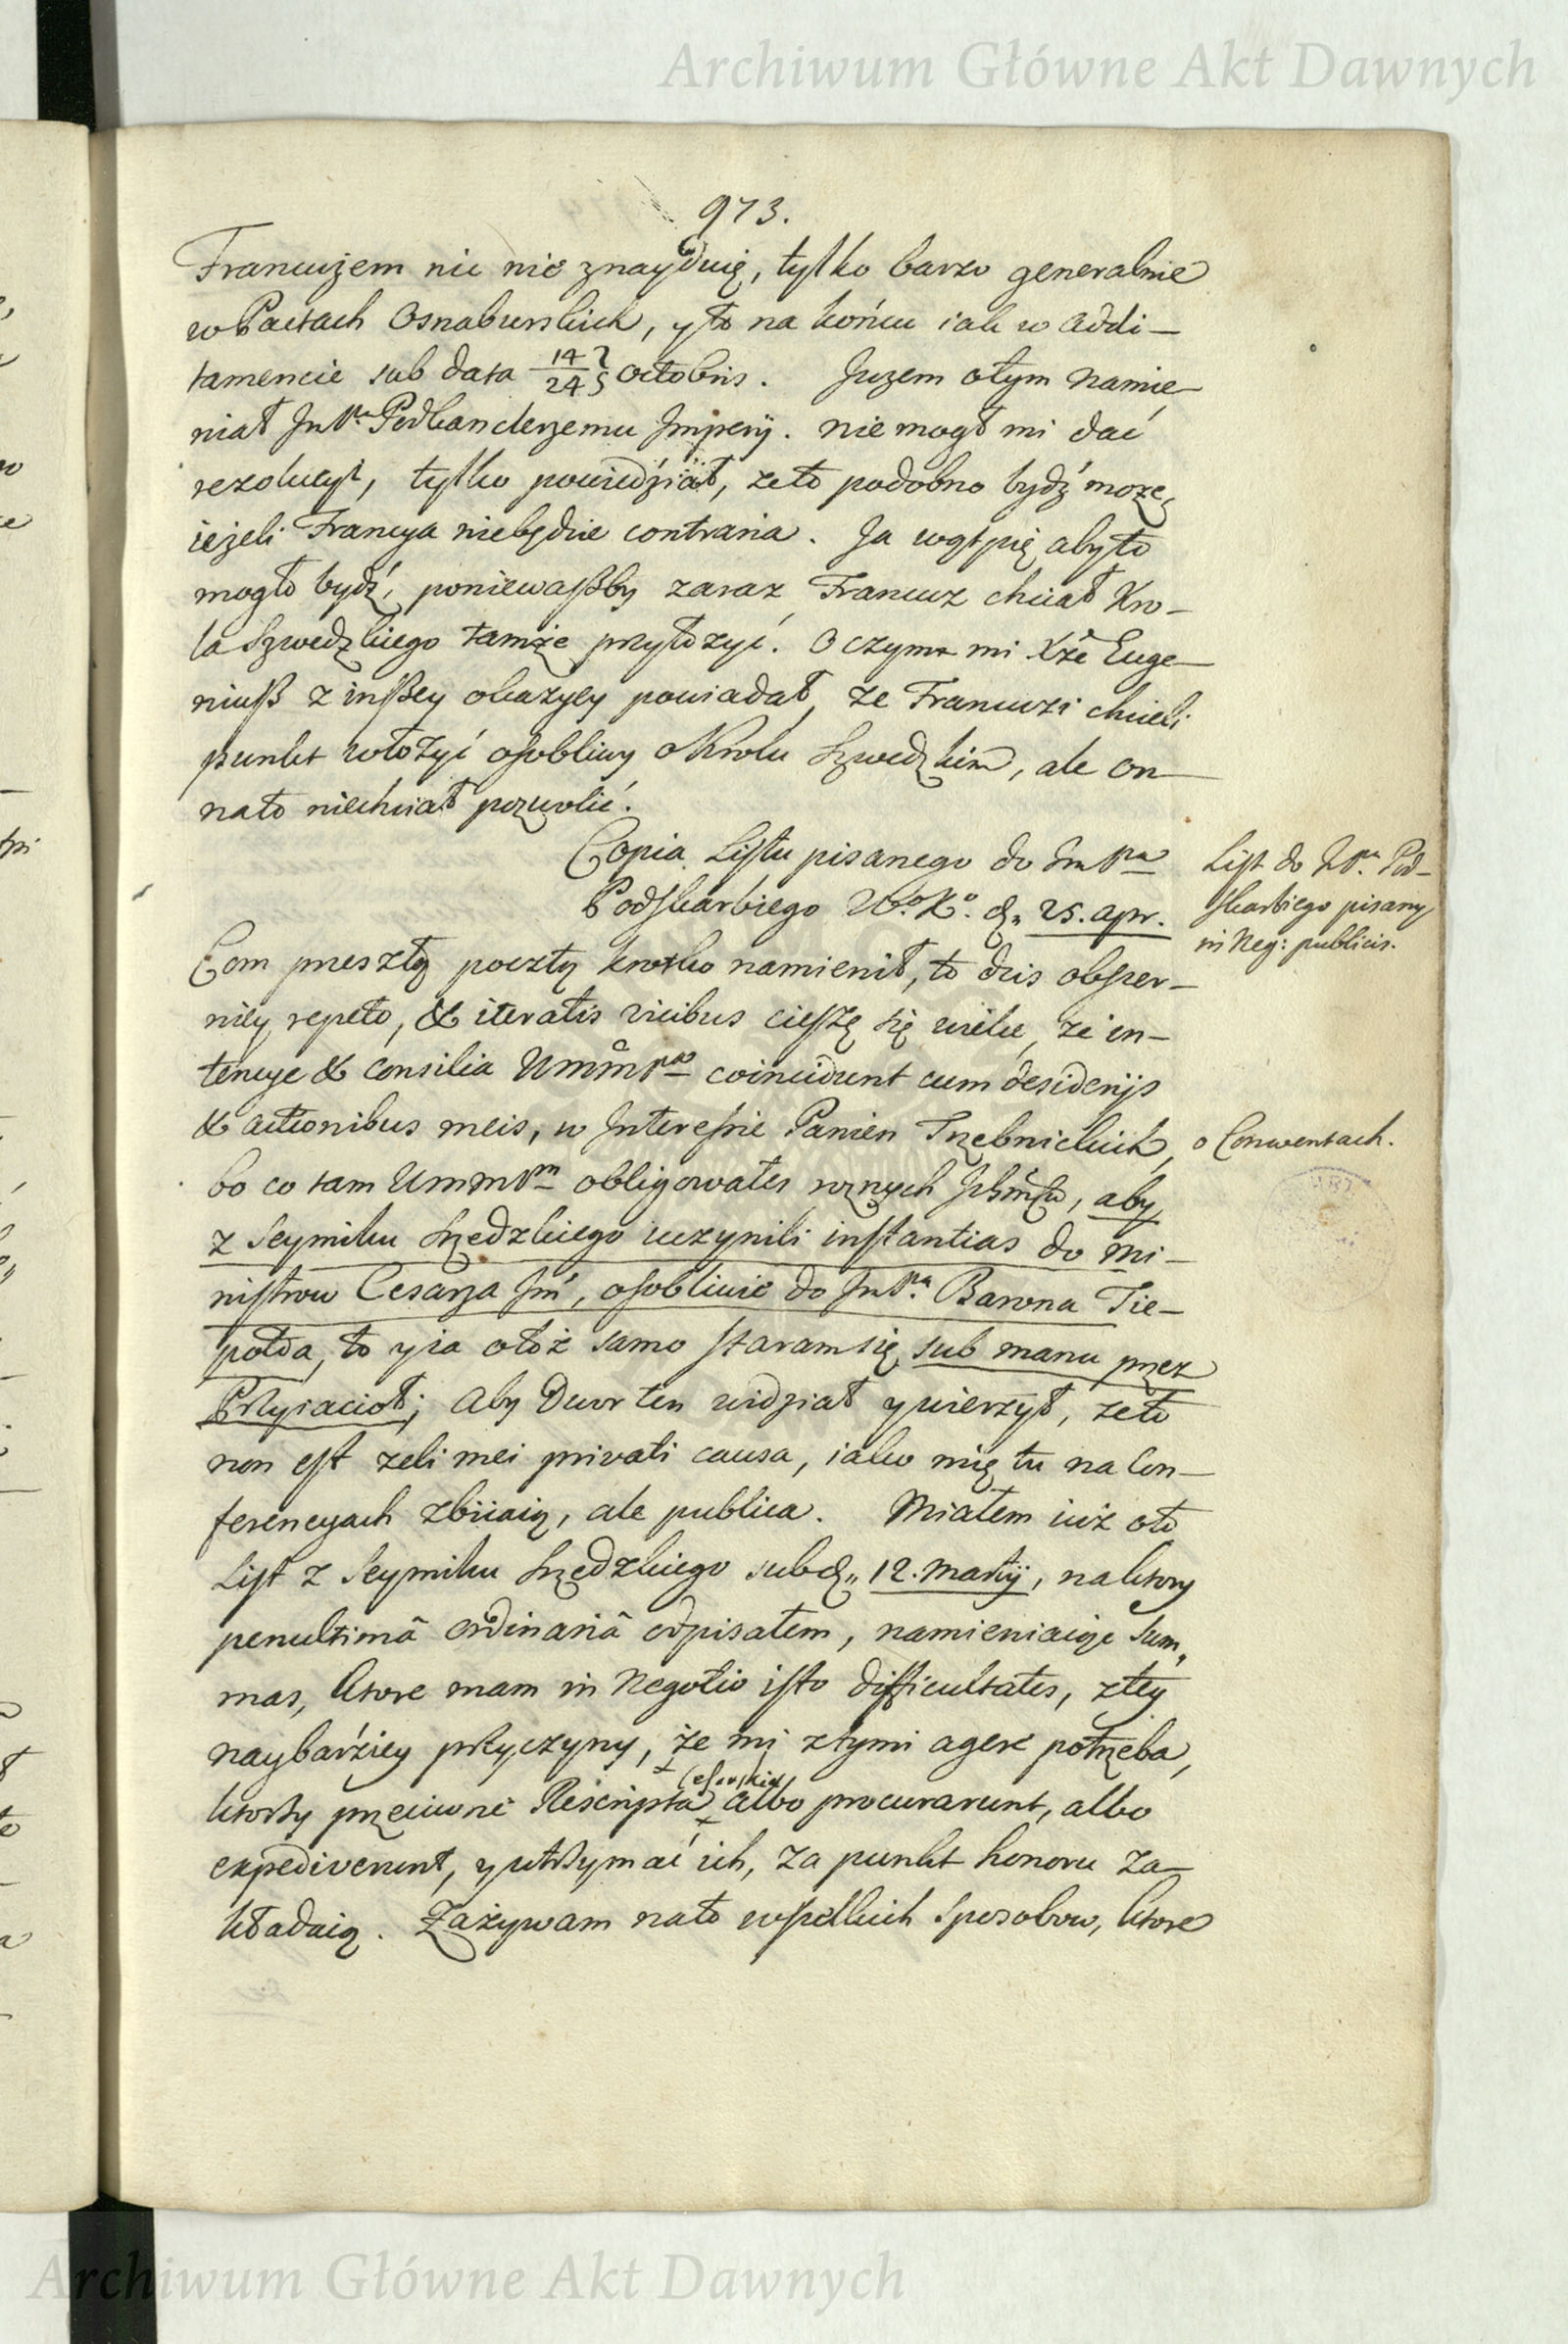 Archiwum Główne Akt Dawnych
973.
Francuzem nic nie znayduię, tylko barzo generalnie
w Pactach Osnaburskich, y to na końcu iak w addi-
tamencie sub data 14/24 Octobris. Juzem otym namie-
niał Jm Pu Podkanclerzemu Imperij. nie mogł mi dać
rezolucyi, tylko powiedział, ze to podobno bydź moze,
ieżeli Francya niebędzie contraria. Ja wątpię aby to
mogło bydź, poniewaßby zaraz Francuz chciał Kro-
la Szwedzkiego tamże przyłozyć. O czym mi Xże Euge-
niuß z inßey okazyey powiadał, ze Francuzi chcieli
punkt włożyć osobliwy o Krolu Szwedzkim, ale on
nato niechciał pozwolić.
Copia Listu pisanego do Jm Pna
Podskarbiego W.o K.o d. 25. Apr.
List do J Pa. Pod-
skarbiego pisany
in Neg: publicis.
Com preszłą pocztą krotko namienił, to dzis obszer-
niey repeto, & iteratis vicibus cieszę się wielce, że in-
tencye & consilia UmmPna coincidunt cum desiderijs
& actionibus meis, w Interessie Panien Trzebnickich,
o Conwentach.
bo co tam UmmPn obligowałes roznych Ichmciow, aby
z Seymiku Szredzkiego uczynili instantias do Mi-
nistrow Cesarza Jm, osobliwie do Jm Pa. Barona Tie-
połda, to y ia otoż samo staram się sub manu przez
Przyiacioł; Aby Dwor ten widział y wierzył, ze to
non est zeli mei privati causa, iako mię tu na Con-
ferencyach zbiiaią, ale publica. Miałem iuż oto
List z Seymiku Szredzkiego sub d. 12. Martij, na ktory
penultimâ Ordinariâ odpisałem, namieniaiąc sum-
mas, ktore mam in Negotio isto difficultates, z tey
naybarziey przyczyny, że mi z tymi agere potrzeba,
ktorzy przeciwne Rescripta (Cesarskie) albo procurarunt, albo
expediverunt, y utrzymać ich, za punkt honoru za-
kładaią. Zażywam nato wszelkich sposobow, ktore
Archiwum Główne Akt Dawnych